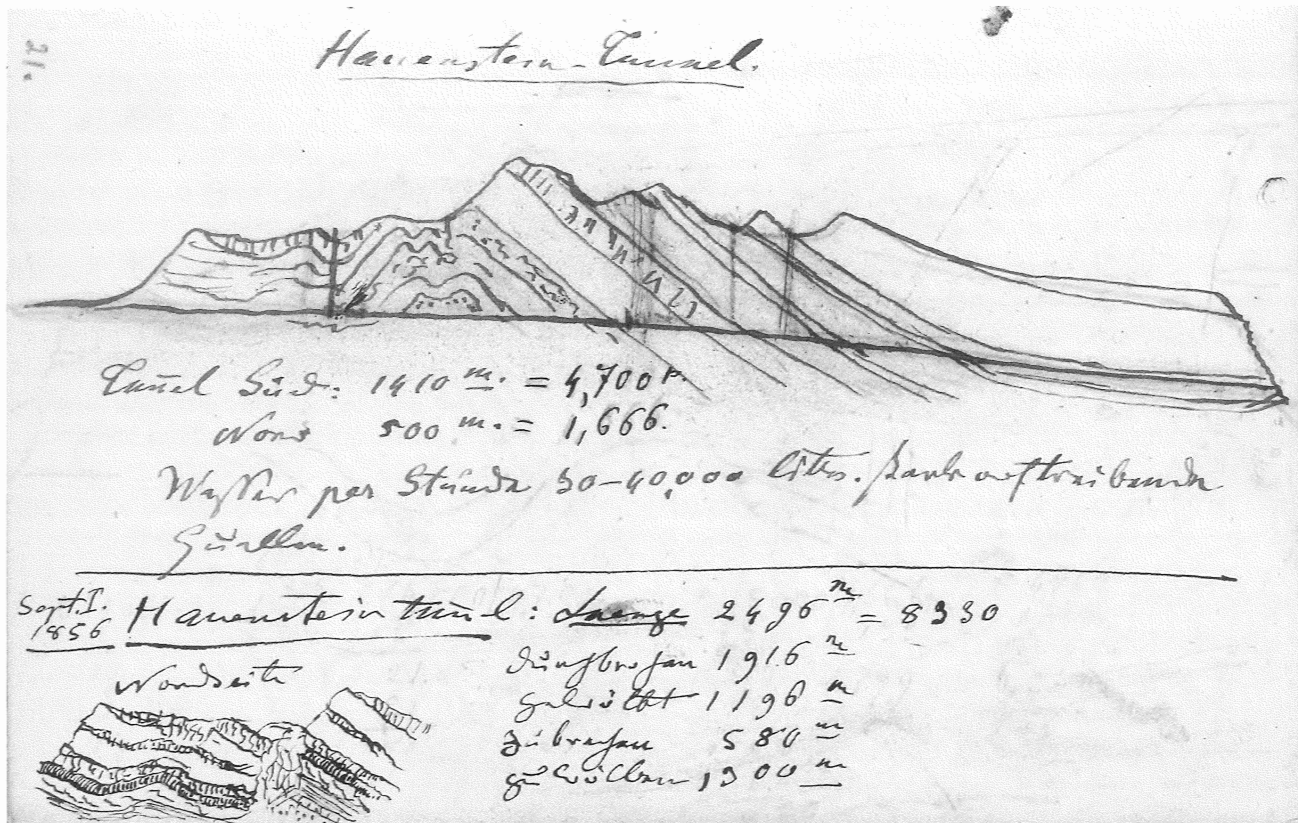 21.
Hauenstein-Tunnel.
Tun̄el Süd: 1410 m. = 4,700 F.
Nord 500 m. = 1,666.
Wasser per Stunde 30-40,000 liter. stark auftreibende
Quellen.
Sept. I. 1856
Hauensteintun̄el: Laenge 2496 m = 8330
Nordseite
durchbrochen 1916 m
gewölbt 1196 m
zu brechen 580 m
zu wölben 1300 m